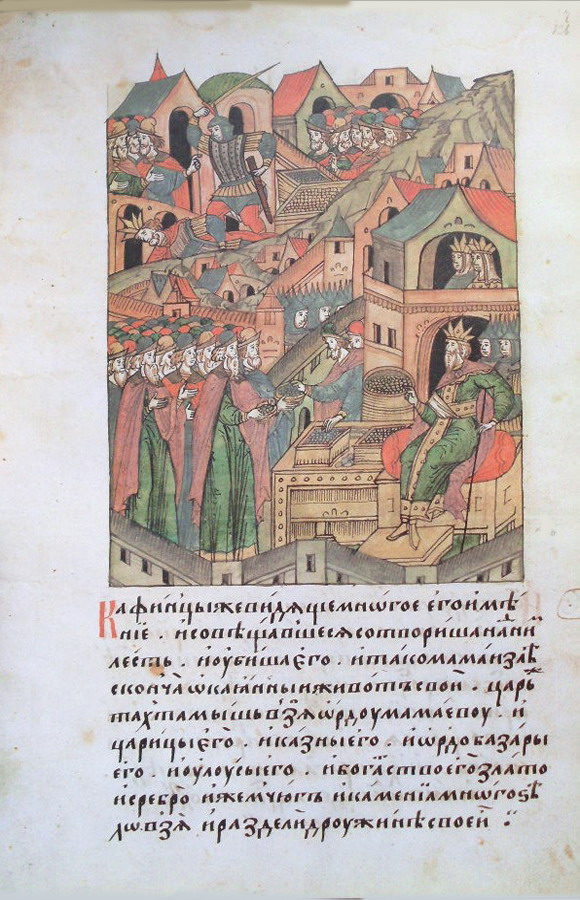 Кафинцы же видяще многое его имѣ
нїе . и совѣщавшеся сотвориша на нӣ
лесть . и оубиша его . и тако мамаи злѣ
сконча ѡкаянныи животъ свои . царь
тахтамышь взя ѡрдоу мамаевоу . и
царицы его . и казны его . и ѡрдобазары
его . и оулоусы его . и богатство его злато
и сребро и жемчюгъ и камениа многоѕѣ
лѡ взя и раздели дроужинѣ своеи :